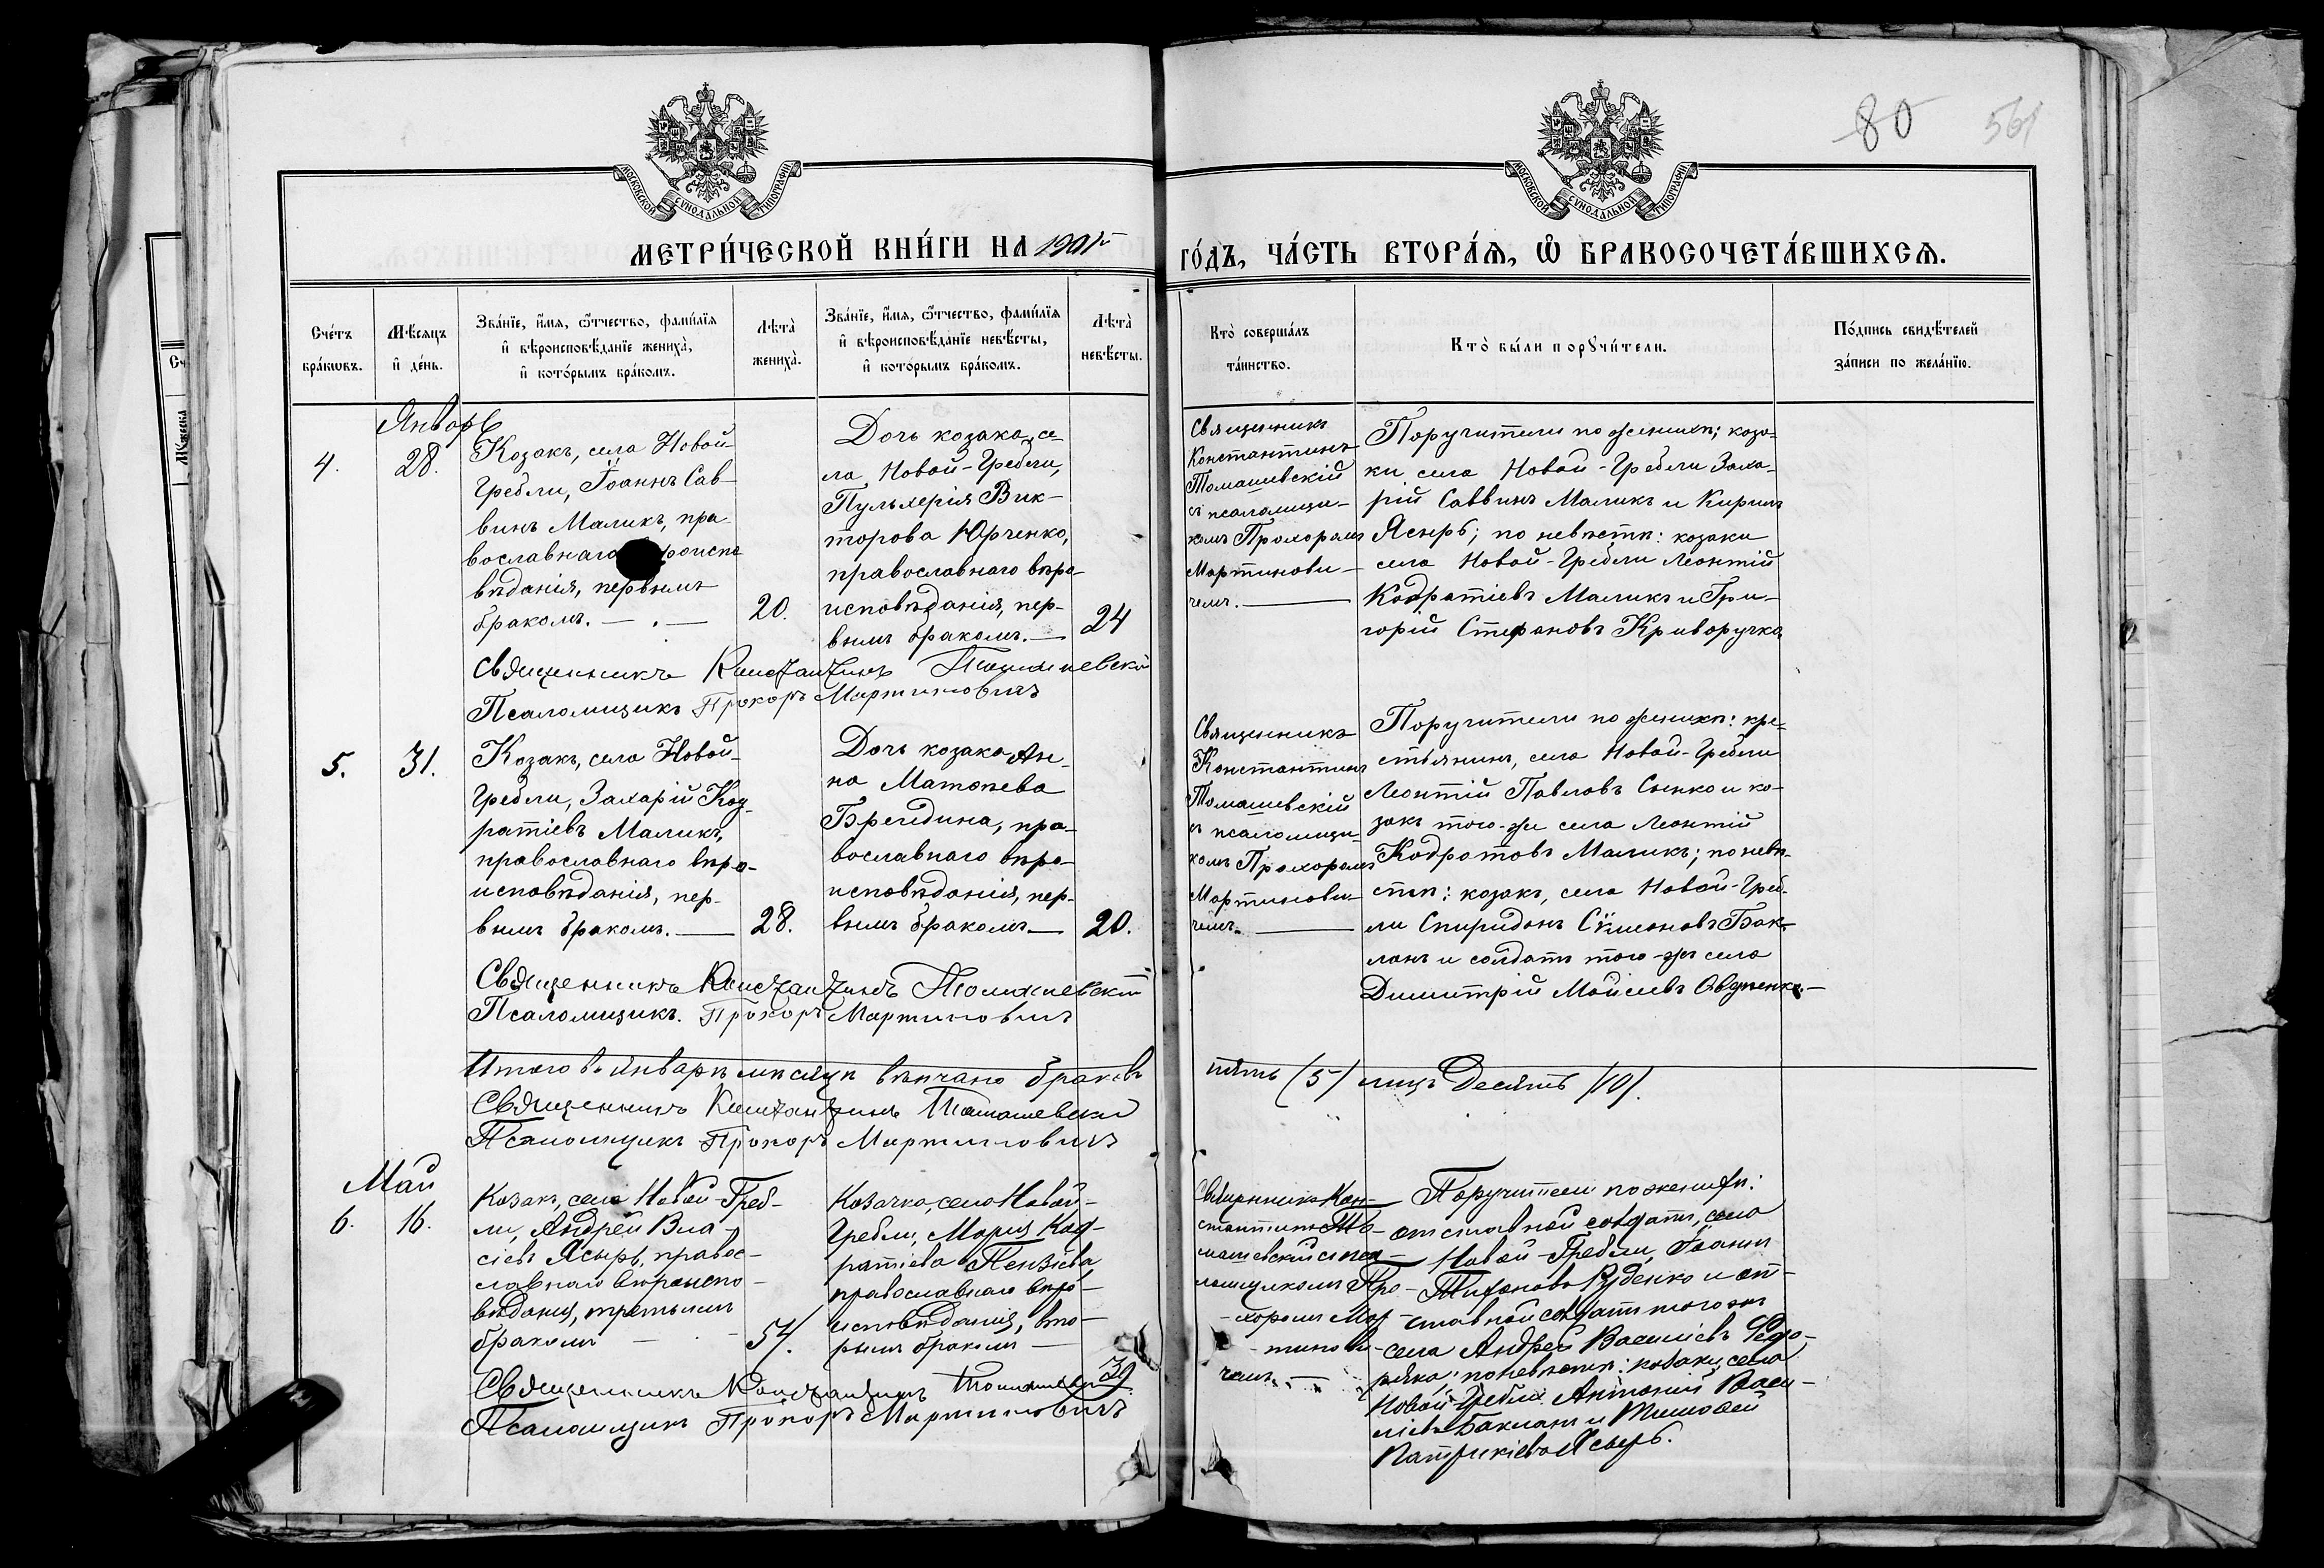 80 561
МОСКОВСКОЙ СѴНОДАЛЬНОЙ ТИПОГРАФІИ
МОСКОВСКОЙ СѴНОДАЛЬНОЙ ТИПОГРАФІИ
МЕТРИ́ЧЕСКОЙ КНИ́ГИ НА 1901й
ГО́ДЪ, ЧА́СТЬ ВТОРА́Я, Ѡ҆ БРАКОСОЧЕТА́ВШИХСЯ.
Сче́тъ бра́кѡвъ.
Мѣ́сяцъ и҆ де́нь.
Зва́нїе, и҆́мя, ѻ҆́тчество, фами́лїя
и҆ вѣроисповѣ́данїе жениха̀,
и҆ кото́рымъ бра́комъ.
Лѣта̀ жениха̀.
Зва́нїе, и҆́мя, ѻ҆́тчество, фами́лїя
и҆ вѣроисповѣ́данїе невѣ́сты,
и҆ кото́рымъ бра́комъ.
Лѣта̀ невѣ́сты.
Кто̀ соверша́лъ
та́инство.
Кто̀ бы́ли порꙋчи́тели.
По́дпись свидѣ́телей
за́писи по жела́нїю.
Январь
4.
28.
Козакъ, села Новой-
Гребли, Іоаннъ Сав-
винъ Маликъ, пра-
вославнаго
вѣданія, первымъ
бракомъ.
20.
Дочь козака, се-
ла Новой-Гребли,
Пульхерія Вик-
торова Юрченко,
православнаго вѣро-
исповѣданія, пер-
вымъ бракомъ.
24
Священникъ
Константинъ
Томашевскій
съ псаломщи-
комъ Прохоромъ
Мартинови-
чемъ.
Поручители по женихѣ; коза-
ки села Новой-Гребли Заха-
рій Саввинъ Маликъ и Кирилъ
Ясырь; по невѣстѣ: козаки
села Новой-Гребли Леонтій
Кодратіевъ Маликъ и Гри-
горій Стефановъ Криворучка
Священникъ Константинъ Томашевскій
Псаломщикъ Прохоръ Мартиновичъ
5.
31.
Козакъ, села Новой-
Гребли, Захарій Код-
ратіевъ Маликъ,
православнаго вѣро-
исповѣданія, пер-
вымъ бракомъ.
28.
Дочь козака Ан-
на Матѳеева
православнаго вѣро-
исповѣданія, пер-
вымъ бракомъ
20.
Священникъ
Константинъ
Томашевскій
съ псаломщи-
комъ Прохоромъ
Мартинови-
чемъ.
Поручители по женихѣ: кре-
стьянинъ, села Новой-Гребли
Леонтій Павловъ и ко-
закъ того-же села Леонтій
Кодратовъ Маликъ; по невѣ-
стѣ: козакъ, села Новой-Греб-
ли Спиридонъ Сѵмеоновъ Бак-
ланъ и солдатъ того-же села
Димитрій Моисеевъ
Священникъ Константинъ Томашевскій
Псаломщикъ. Прохоръ Мартиновичъ
Итого въ Январѣ мѣсяцѣ вѣнчано браковъ
пять (5) лицъ Десять (10).
Священникъ Константинъ Томашевскій
Псаломщикъ Прохоръ Мартиновичъ
Май
6.
16.
Козакъ, села Новой-Греб-
ли, Андрей Вла-
сіевъ Ясырь, правос-
лавнаго вѣроиспо-
вѣданія, третьимъ
бракомъ
54.
Козачка, села Новой-
Гребли, Марія Код-
ратіева
православнаго вѣро-
исповѣданія, вто-
рымъ бракомъ
39
Священникъ Кон-
стантинъ То-
машевскій съ пса-
ломщикомъ Про-
хоромъ Мар-
тинови-
чемъ
Поручители по женихѣ:
отставной солдатъ, села
Новой-Гребли, Іоаннъ
Тихоновъ Руденко и от-
ставной солдатъ того же
села Андрей Василіевъ Федо-
ряка; по невѣстѣ: козаки, села
Новой-Гребли Антоній Васи-
ліевъ Бакланъ и Тимоѳей
Патрикіевъ Ясырь.
Священникъ Константинъ Томашевскій
Псаломщикъ Прохоръ Мартиновичъ